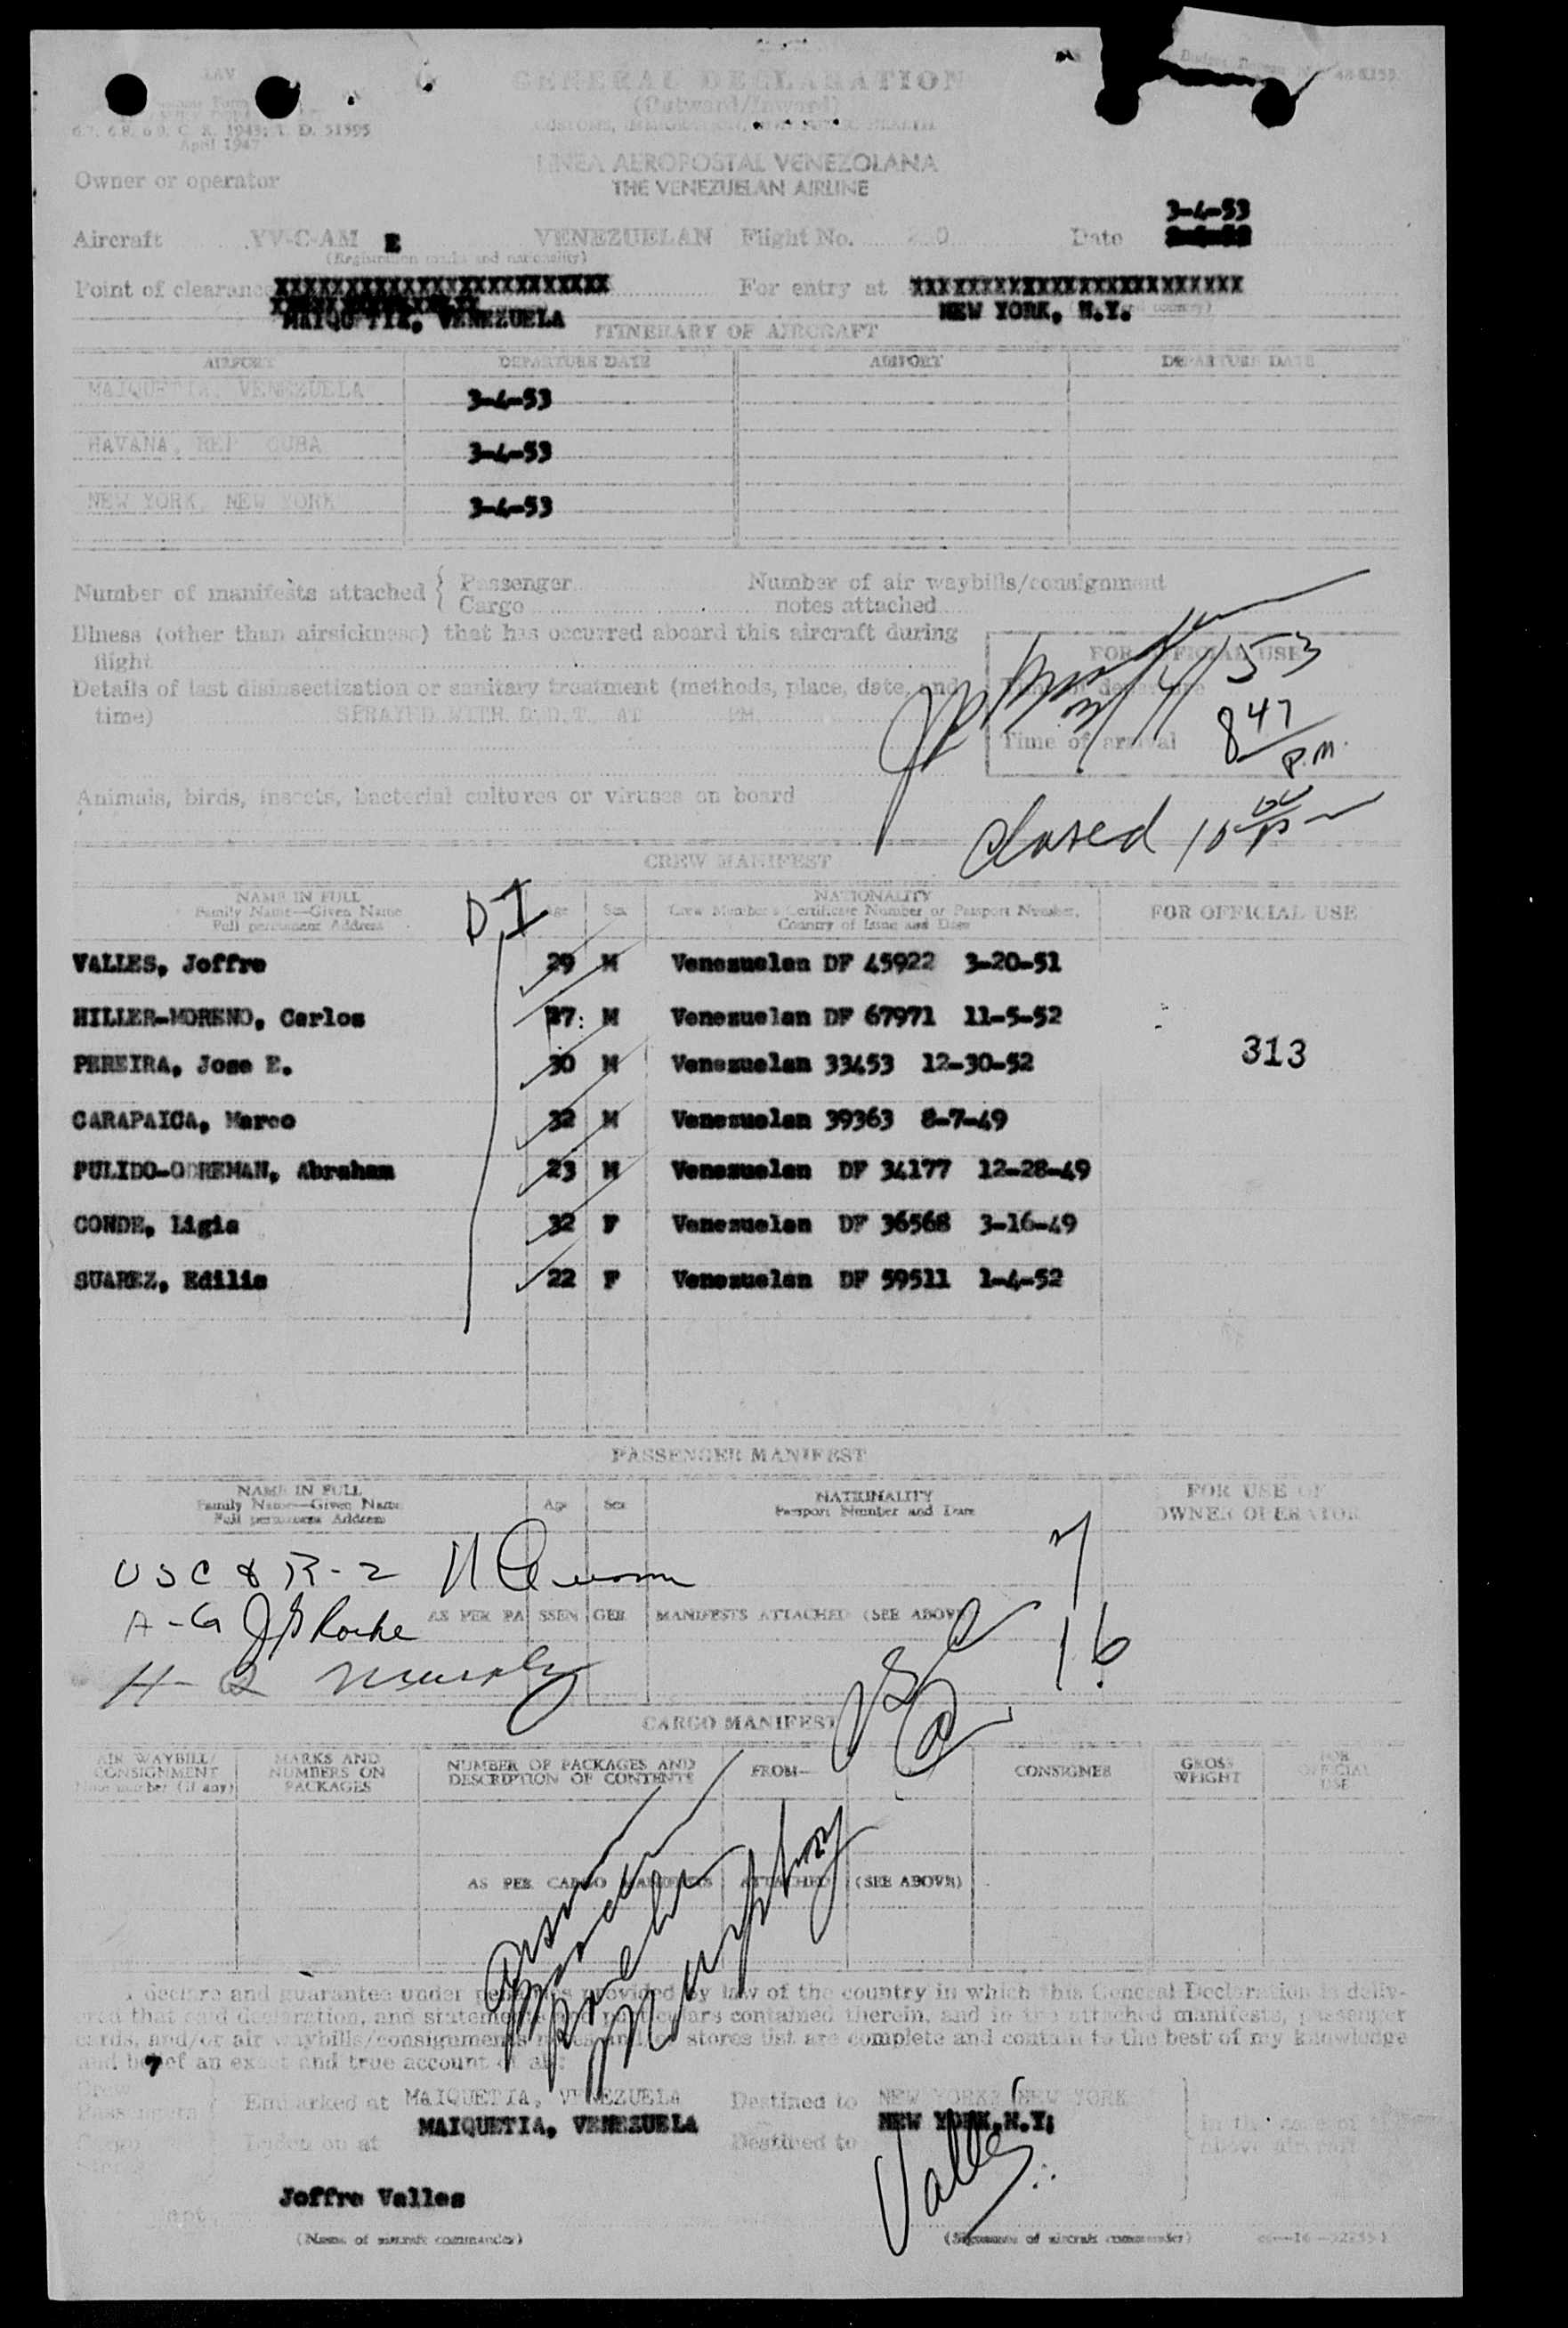 LAV
GENERAL DECLARATION
(Outward/Inward)
CUSTOMS, IMMIGRATION, AND PUBLIC HEALTH
6.7, 6.8, 6.9, C. R. 1943; T. D. 51595
April 1947
LINEA AEROPOSTAL VENEZOLANA
THE VENEZUELAN AIRLINE
Owner or operator
3-4-53
Aircraft YV-C-AM E VENEZUELAN Flight No. Date
(Registration marks and nationality)
Point of clearance XXXXXXXXXXXXXXXXXXXXXXXX For entry at XXXXXXXXXXXXXXXXXXXXXXXX
MAIQUETIA, VENEZUELA NEW YORK, N.Y.
ITINERARY OF AIRCRAFT
AIRPORT DEPARTURE DATE AIRPORT DEPARTURE DATE
MAIQUETIA, VENEZUELA 3-4-53
HAVANA, REP CUBA 3-4-53
NEW YORK, NEW YORK 3-4-53
Number of manifests attached { Passenger Number of air waybills/consignment
Cargo notes attached
Illness (other than airsickness) that has occurred aboard this aircraft during
flight
FOR OFFICIAL USE
Details of last disinsectization or sanitary treatment (methods, place, date, and
time) SPRAYED WITH D.D.T. AT PM.
Time of departure
3/4/53
Time of arrival 8 47 P.M.
Animals, birds, insects, bacterial cultures or viruses on board
closed 10
CREW MANIFEST
NAME IN FULL NATIONALITY
Family Name—Given Name Age Sex Crew Member's Certificate Number or Passport Number, FOR OFFICIAL USE
Full permanent Address Country of Issue and Date
DI
VALLES, Joffre 29 M Venezuelan DF 45922 3-20-51
HILLER-MORENO, Carlos 37: M Venezuelan DF 67971 11-5-52
PEREIRA, Jose E. 30 M Venezuelan 33453 12-30-52 313
CARAPAICA, Marco 32 M Venezuelan 39363 8-7-49
PULIDO-ODREMAN, Abraham 23 M Venezuelan DF 34177 12-28-49
CONDE, Ligia 32 F Venezuelan DF 36568 3-16-49
SUAREZ, Edilia 22 F Venezuelan DF 59511 1-4-52
PASSENGER MANIFEST
NAME IN FULL NATIONALITY FOR USE OF
Family Name—Given Name Age Sex Passport Number and Date OWNER OPERATOR
Full permanent Address
USC & R-2
A-G J P Roche AS PER PASSENGER MANIFESTS ATTACHED (SEE ABOVE)
7
H-Q Murphy 16
USC
CARGO MANIFEST
AIR WAYBILL/ MARKS AND NUMBER OF PACKAGES AND FROM— CONSIGNEE GROSS FOR
CONSIGNMENT NUMBERS ON DESCRIPTION OF CONTENTS WEIGHT OFFICIAL
Note number (if any) PACKAGES USE
AS PER CARGO MANIFESTS ATTACHED (SEE ABOVE)
Murphy
I declare and guarantee under penalties provided by law of the country in which this General Declaration is deliv-
ered that said declaration, and statements and particulars contained therein, and in the attached manifests, passenger
cards, and/or air waybills/consignments notes and stores list are complete and contain to the best of my knowledge
and belief an exact and true account of all:
7
Crew
Passengers } Embarked at MAIQUETIA, VENEZUELA Destined to NEW YORK, NEW YORK
MAIQUETIA, VENEZUELA NEW YORK, N.Y.
Cargo Laden on at Destined to In the case of
Stores above aircraft
Joffre Valles Valles
(Name of aircraft commander) (Signature of aircraft commander)